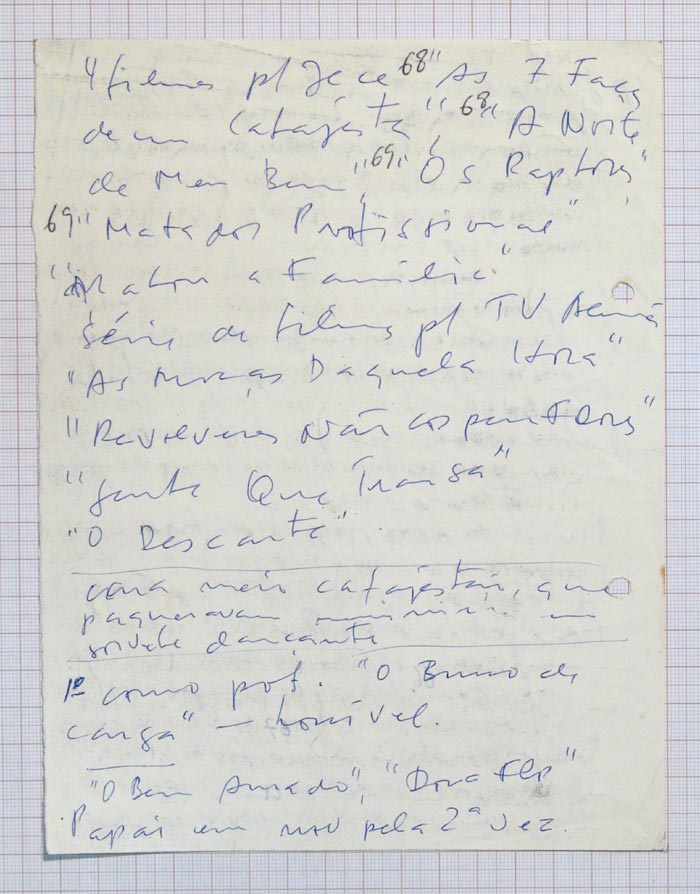 4 filmes p/ Jece 68 "As 7 Faces
de um Cafajeste", 68 "A Noite
de Meu Bem", 69 "Os Raptores"
69 "Matador Profissional"
"Matou a Família"
série de filmes p/ TV Alemã
"As Moças Daquela Hora"
"Revólveres Não Cospem Flores"
"Gente Que Transa"
"O Descarte"
cara meio cafajestão, que
paqueravam em
sorvete dançante
1º como prof. "O Burro de
carga" – horrível.
"O Bem Amado", "Dona Flor"
Papai em nov pela 2ª vez.